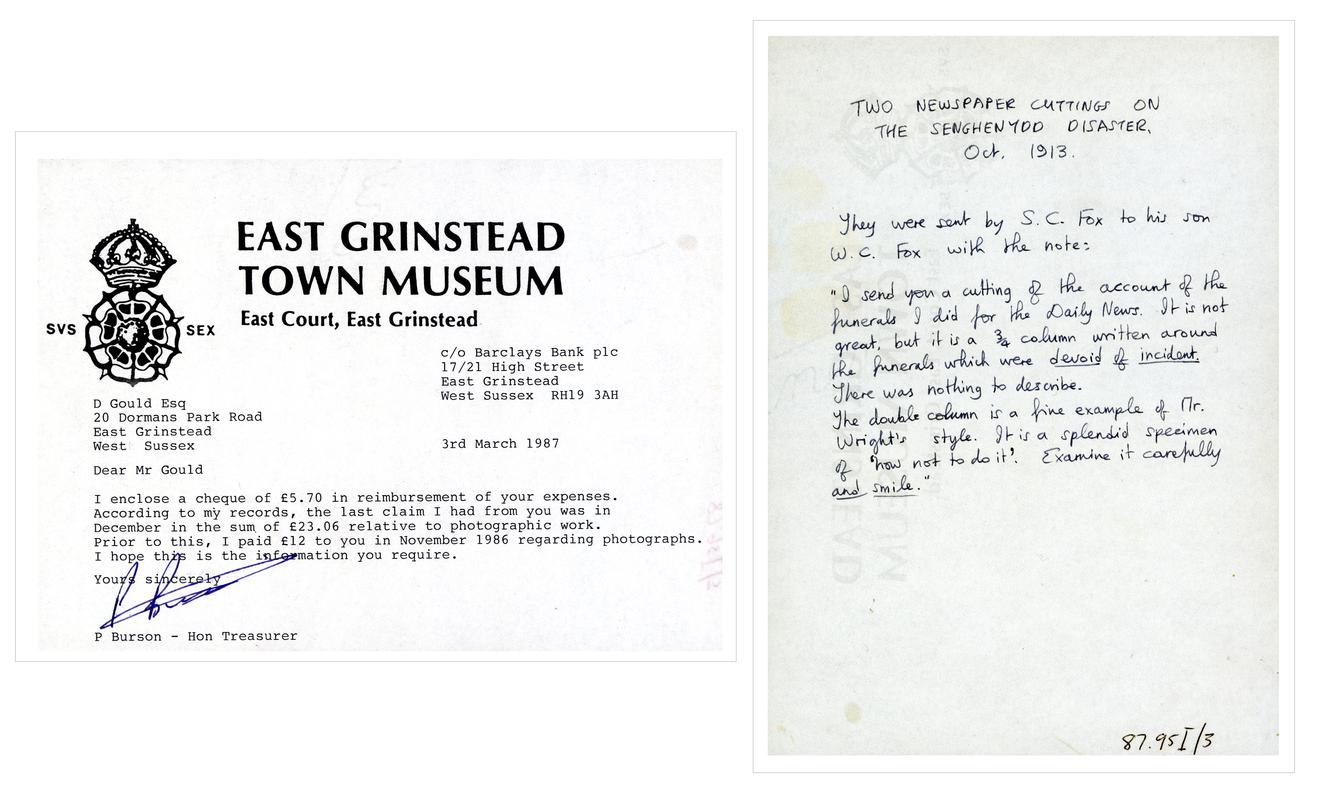 EAST GRINSTEAD
TOWN MUSEUM
East Court, East Grinstead
SVS SEX
c/o Barclays Bank plc
17/21 High Street
East Grinstead
West Sussex RH19 3AH
D Gould Esq
20 Dormans Park Road
East Grinstead
West Sussex
3rd March 1987
Dear Mr Gould
I enclose a cheque of £5.70 in reimbursement of your expenses.
According to my records, the last claim I had from you was in
December in the sum of £23.06 relative to photographic work.
Prior to this, I paid £12 to you in November 1986 regarding photographs.
I hope this is the information you require.
Yours sincerely
P Burson - Hon Treasurer
TWO NEWSPAPER CUTTINGS ON
THE SENGHENYDD DISASTER,
Oct. 1913.
They were sent by S.C. Fox to his son
W.C. Fox with the note:
"I send you a cutting of the account of the
funerals I did for the Daily News. It is not
great, but it is a 3/4 column written around
the funerals which were devoid of incident.
There was nothing to describe.
The double column is a fine example of Mr.
Wright's style. It is a splendid specimen
of 'how not to do it'. Examine it carefully
and smile."
87.95I/3